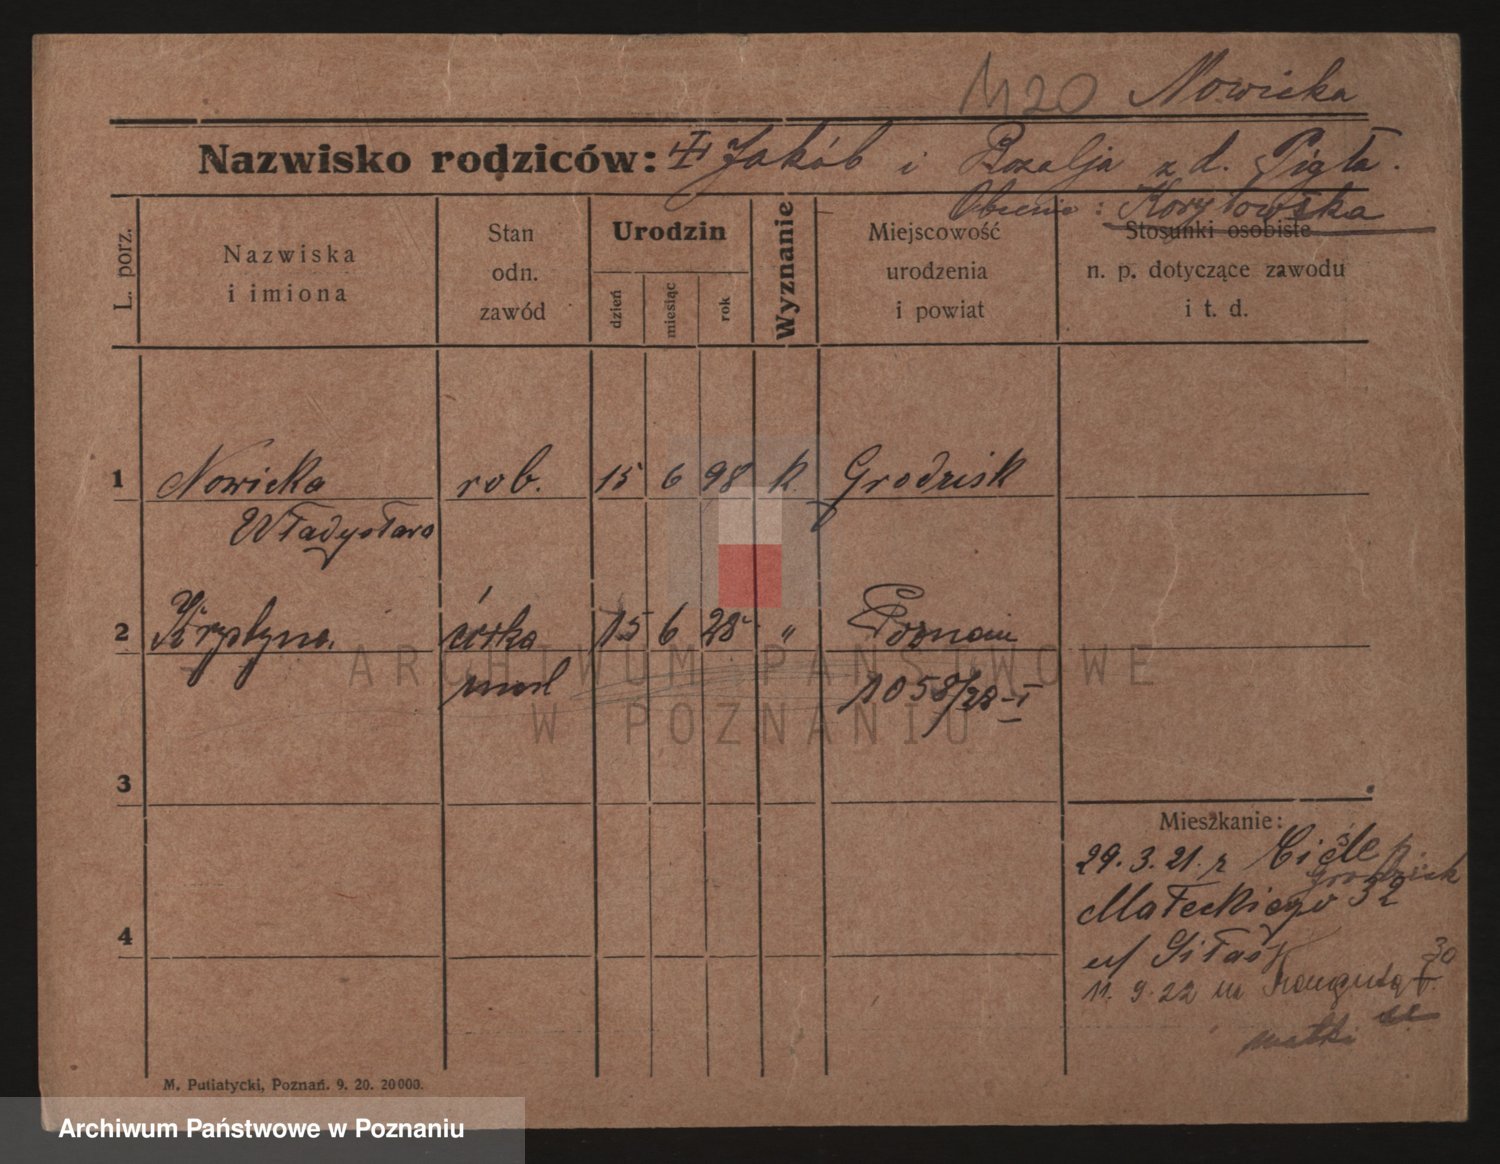 1120 Nowicka
Nazwisko rodziców: Jakób i Rozalja z d. Pięta.
Obecnie: Korytowska
L. porz.
Nazwiska
i imiona
Stan
odn.
zawód
Urodzin
dzień
miesiąc
rok
Wyznanie
Miejscowość
urodzenia
i powiat
Stosunki osobiste
n. p. dotyczące zawodu
i t. d.
1 Nowicka rob. 15 6 98 k. Grodzisk
Władysława
2 Krystyna. córka 15 6 28 " Poznań
1058/28-I
3
4
Mieszkanie:
29.3.21. z
Grodzisk
Małeckiego 32
u/
11.9.22 30
matki
M. Putiatycki, Poznań. 9. 20. 20000.
ARCHIWUM PAŃSTWOWE
W POZNANIU
Archiwum Państwowe w Poznaniu